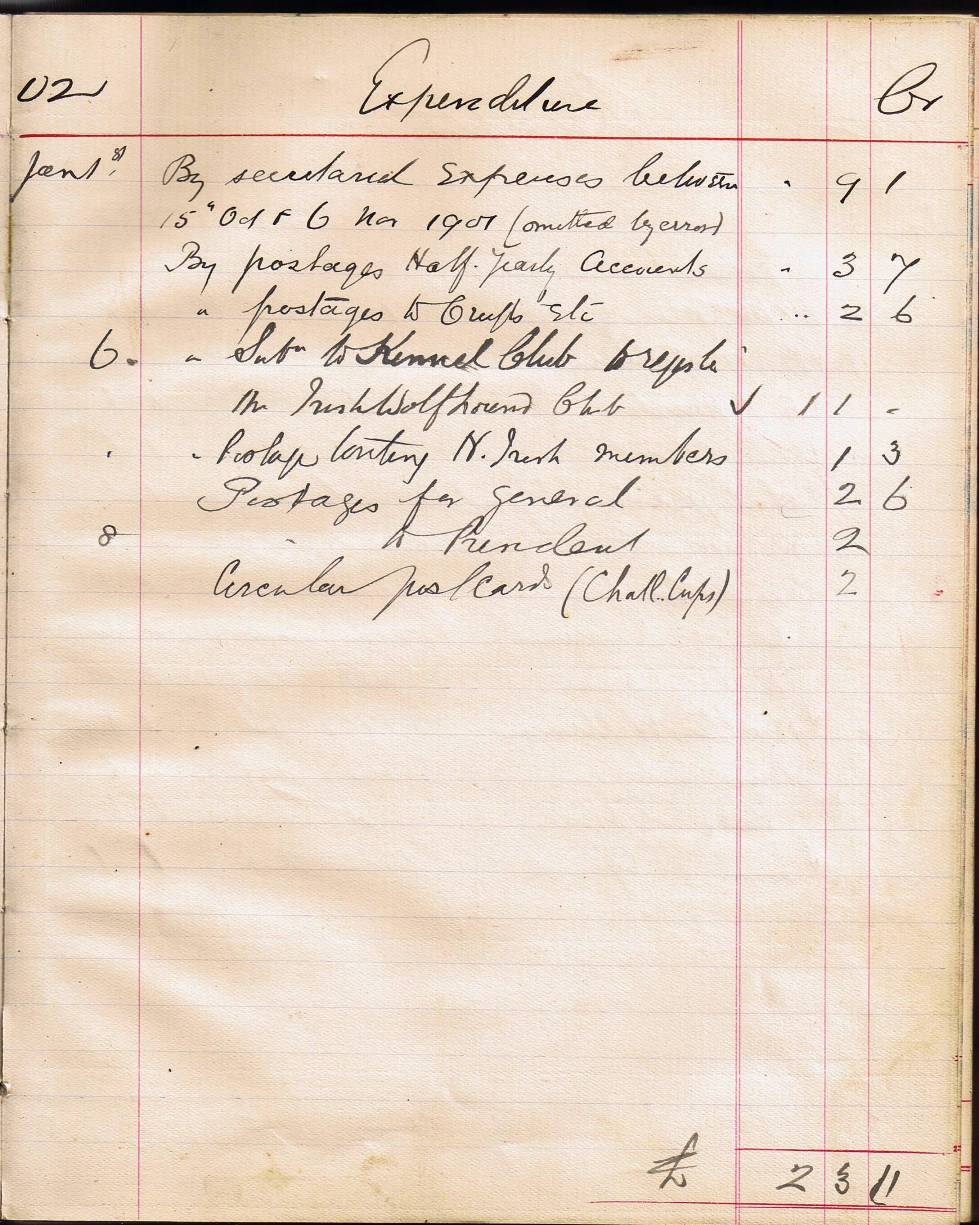 02 Expenditure Cr
Jan 1st By secretarial Expenses between " 9 1
15" Oct & 6 Nov 1901 (omitted by error)
By postages Half-Yearly Accounts " 3 7
" postages to Crufts Etc " 2 6
6. " Subn to Kennel Club to register
the Irish Wolfhound Club ✓ 1 1 -
" " Postage writing N. Irish members 1 3
Postages for general 2 6
8 " to President 2
Circular postcards (Chall. Cups) 2
£ 2 3 11